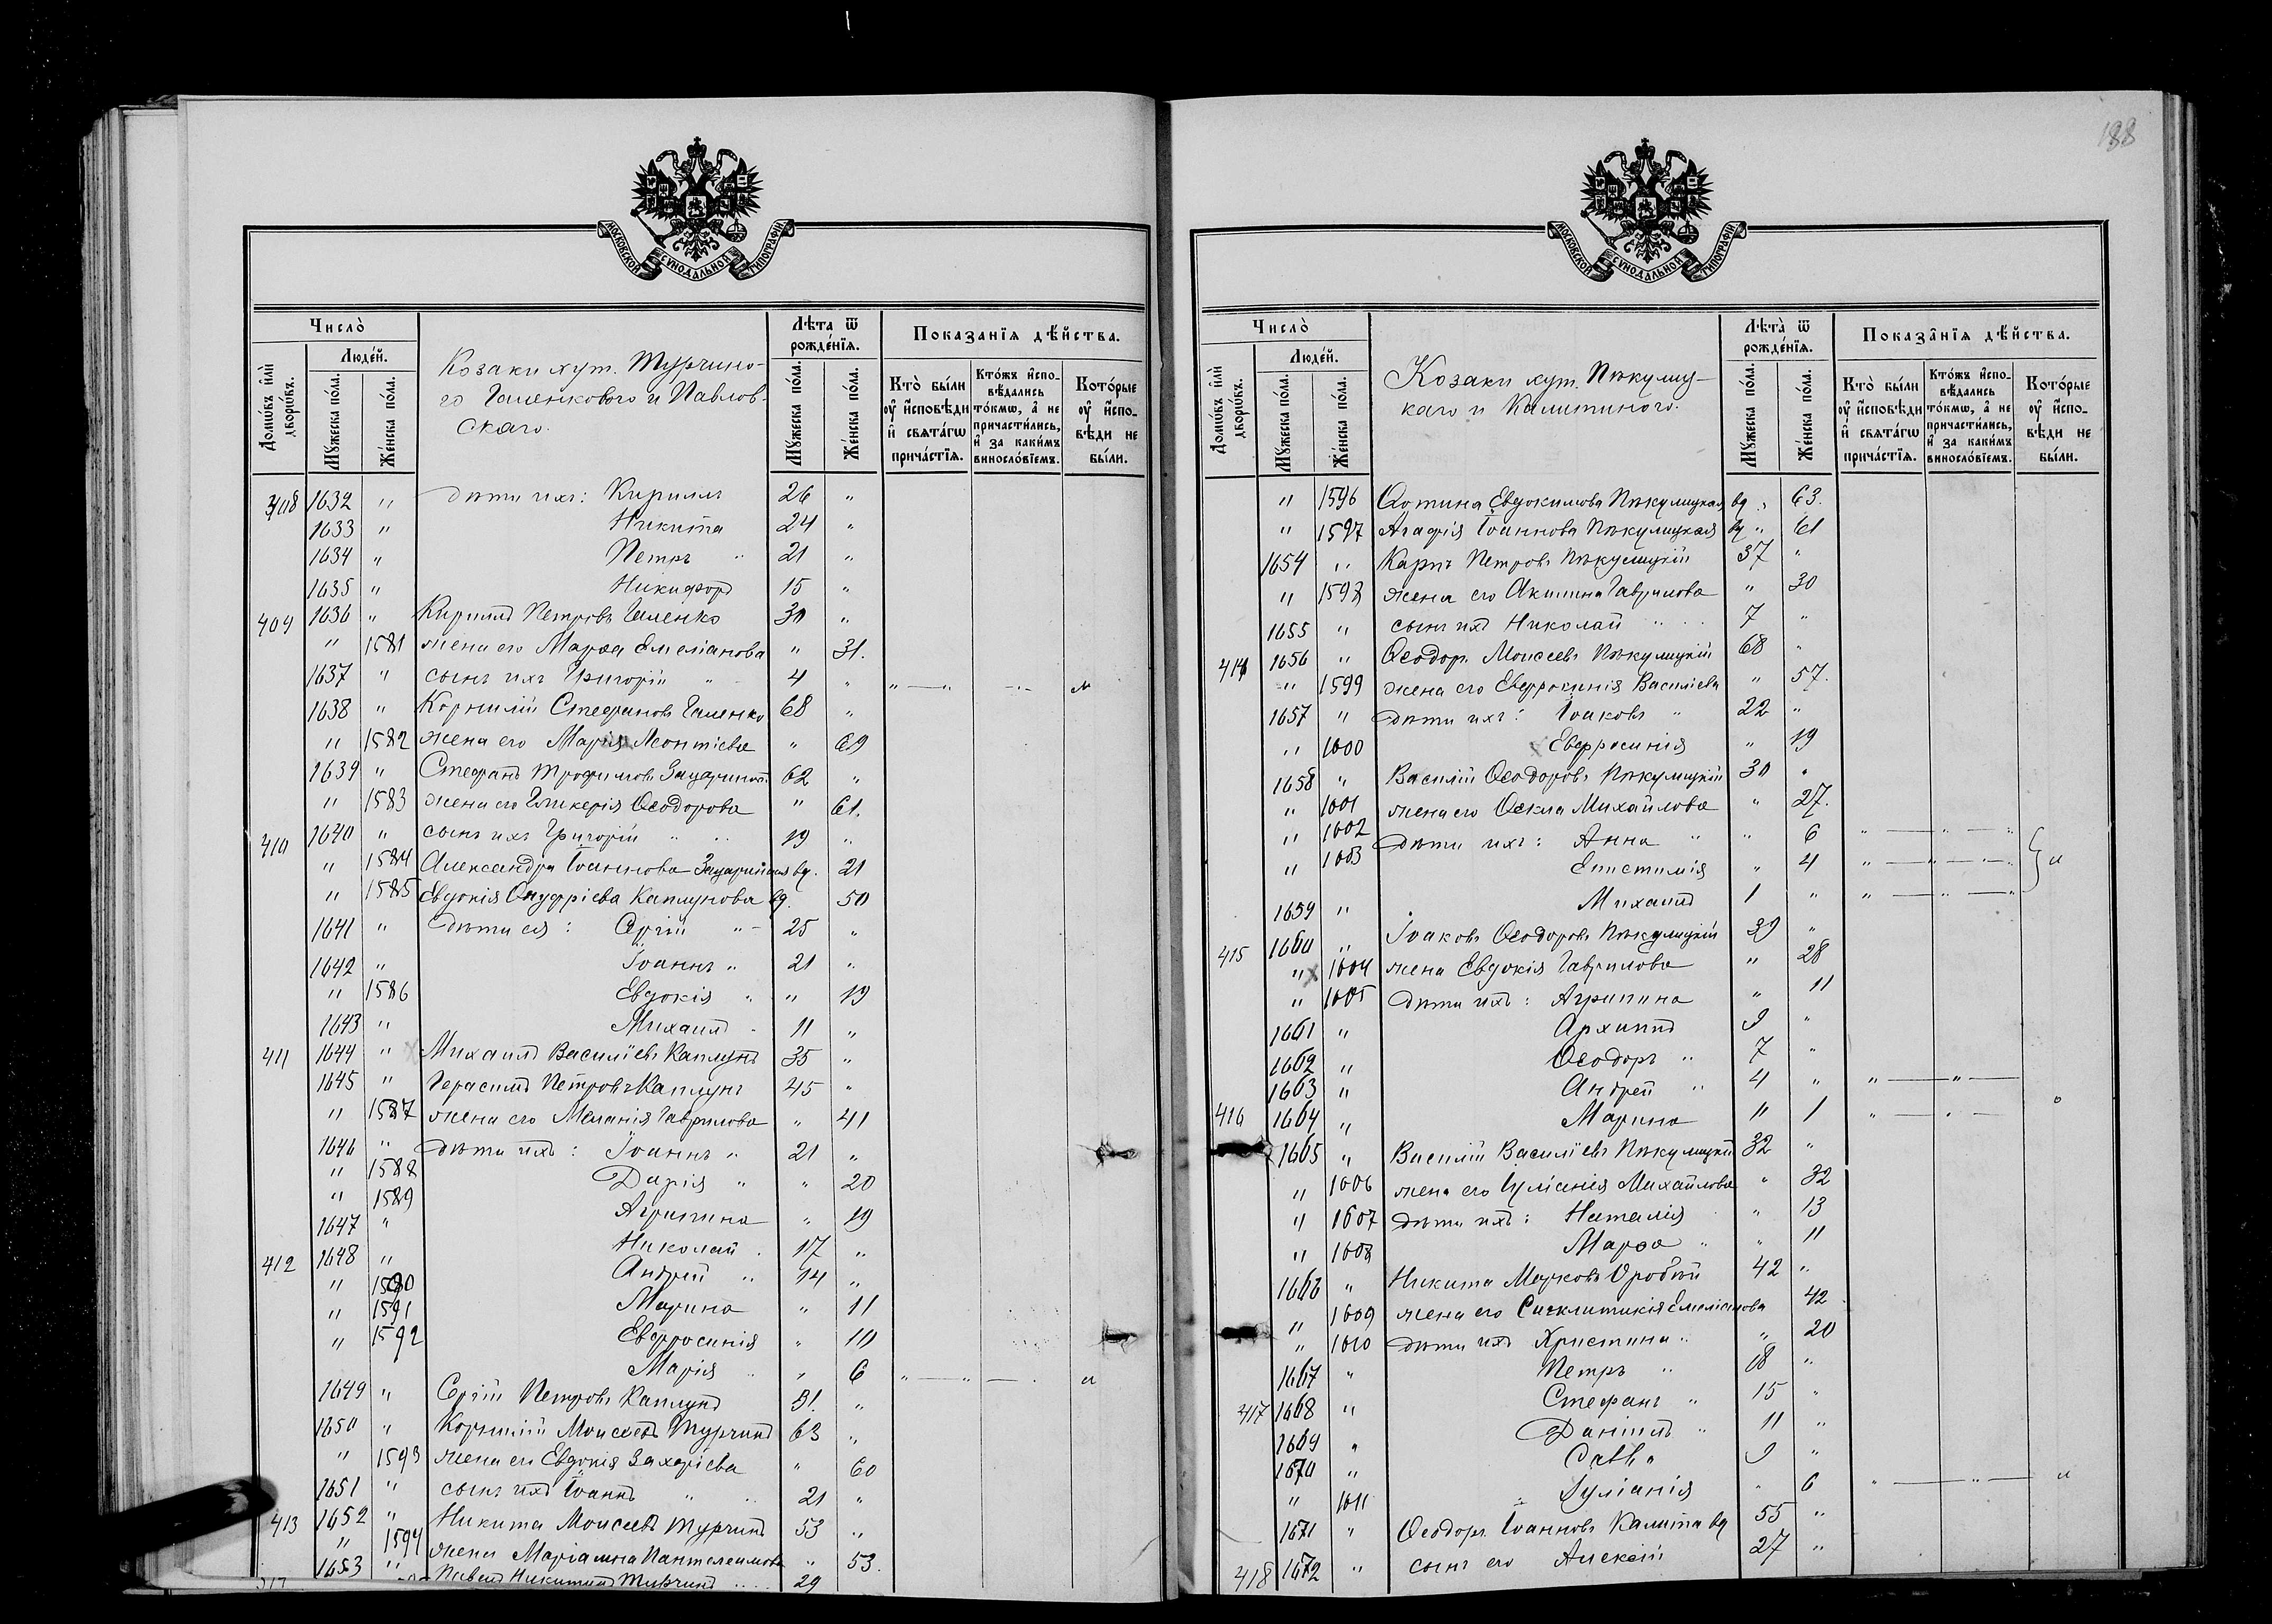 188
МОСКОВСКОЙ СѴНОДАЛЬНОЙ ТИПОГРАФІИ
Число̀
Людéй.
Домѡ́въ и҆лѝ дворѡ́въ.
Мꙋ́жеска по́ла.
Же́нска по́ла.
Козаки хут. Турчино-
го Галенкового и Павлов-
скаго.
Лѣта ѿ рожде́нїѧ.
Мꙋ́жеска по́ла.
Же́нска по́ла.
Показанїѧ дѣ́йства.
Кто̀ бы́ли оу҆ и҆спо́вѣди и҆ свѧта́гѡ прича́стїѧ.
Кто́жъ и҆спо-вѣдались то́кмѡ, а҆ не причасти́лись, и҆ за каки́мъ винослóвїемъ.
Кото́рые оу҆ и҆спо-вѣди не бы́ли.
408 1632 " дѣти ихъ: Кириллъ 26 "
1633 " Никита 24 "
1634 " Петръ " 21 "
1635 " Никифоръ 15 "
409 1636 " Кириллъ Петровъ Галенко 30 "
" 1581 жена его Марѳа Емеліанова " 31.
1637 " сынъ ихъ Григорій " 4 " " — "
1638 " Корнилій Стефановъ Галенко 68 "
" 1582 жена его Марія Леонтіева " 69
1639 " Стефанъ Трофимовъ 62 "
" 1583 жена его Гликерія Ѳеодорова " 61.
410 1640 " сынъ ихъ Григорій " 19 "
" 1584 Александра Іоаннова вд. 21
" 1585 Евдокія Онуфріева Каплунова вд. 50
1641 " дѣти ея: Сергій " 25 "
1642 " Іоаннъ " 21 "
" 1586 Евдокія " " 19
1643 " Михаилъ 11 "
411 1644 " Михаилъ Васильевъ Каплунъ 35 "
1645 " Герасимъ Петровъ Каплунъ 45 "
" 1587 жена его Меланія Гаврилова " 41
1646 " дѣти ихъ: Іоаннъ " 21 "
" 1588 Дарія " " 20
" 1589 Агрипина " 19
1647 " Николай 17 "
412 1648 " Андрей " 14 "
" 1590 Марина " 11
" 1591 Евфросинія " 10
" 1592 Марія " 6 " — " —
1649 " Сергій Петровъ Каплунъ 31. "
1650 " Корнилій Моисеевъ Турчинъ 63 "
" 1593 жена его Евдокія Захаріева " 60
1651 " сынъ ихъ Іоаннъ " 21 "
413 1652 " Никита Моисеевъ Турчинъ 53 "
" 1594 жена Маріамна Пантелеимова " 53.
1653 " Павелъ Никитинъ Турчинъ 29
МОСКОВСКОЙ СѴНОДАЛЬНОЙ ТИПОГРАФІИ
Число̀
Людéй.
Домѡ́въ и҆лѝ дворѡ́въ.
Мꙋ́жеска по́ла.
Же́нска по́ла.
Козаки хут. Пѣкулиц-
каго и Калитиного.
Лѣта̀ ѿ рожде́нїѧ.
Мꙋ́жеска по́ла.
Же́нска по́ла.
Показа̂нїѧ дѣ́йства.
Кто̀ бы́ли оу҆ и҆спо́вѣди и҆ свѧта́гѡ прича́стїѧ.
Кто́жъ и҆спо-вѣдались то́кмѡ, а҆ не причасти́лись, и҆ за каки́мъ винослóвїемъ.
Кото́рые оу҆ и҆спо-вѣди не бы́ли.
" 1596 Евдокимова Пѣкулицкая вд " 63.
" 1597 Агафія Іоаннова Пѣкулицкая вд " 61
1654 " Карпъ Петровъ Пѣкулицкій 37 "
" 1598 жена его Акилина Гаврилова " 30
1655 " сынъ ихъ Николай 7 "
414 1656 " Ѳеодоръ Моисеевъ Пѣкулицкій 68 "
" 1599 жена его Евфросинія Василіева " 57.
1657 " дѣти ихъ: Іоаковъ " 22 "
" 1600 Евфросинія " 19
1658 " Василій Ѳеодоровъ Пѣкулицкій 30 "
" 1601 жена его Ѳекла Михайлова " 27.
" 1602 дѣти ихъ: Анна " " 6 " — " — "
" 1603 Епистимія " 4 " — " — "
1659 " Михаилъ 1 " " — " — "
415 1660 " Іоаковъ Ѳеодоровъ Пѣкулицкій 39 "
" 1604 жена Евдокія Гаврилова " 28
" 1605 дѣти ихъ: Агрипина " 11
1661 " Архиппъ 9 "
1662 " Ѳеодоръ " 7 "
1663 " Андрей " 4 " " — " —
416 1664 " Марина " 1 " — " —
1665 " Василій Васильевъ Пѣкулицкій 32 "
" 1606 жена его Іуліанія Михайлова " 32
" 1607 дѣти ихъ: Наталія " 13
" 1608 Марѳа " " 11
1666 " Никита Марковъ 42 "
" 1609 жена его Синклитикія Емеліанова 42
" 1610 дѣти ихъ Христина " " 20
1667 " Петръ " 18 "
417 1668 " Стефанъ " 15 "
1669 " Даніилъ " 11 "
1670 " Савва 9 "
" 1611 Іуліанія " 6 " — " —
1671 " Ѳеодоръ Іоанновъ Калита вд 55 "
418 1672 " сынъ его Алексій 27 "